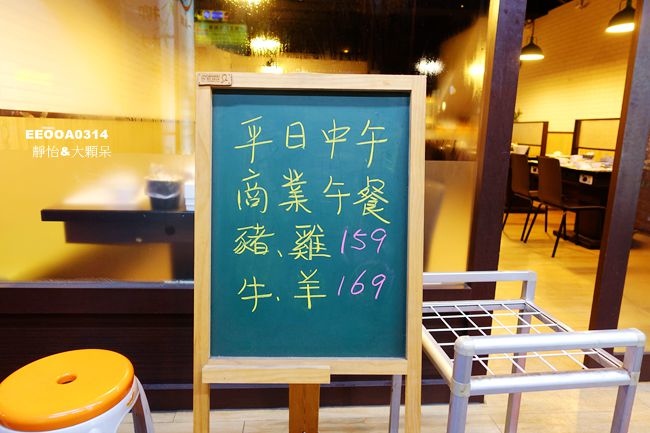 EEOOA0314
靜怡&大顆呆
平日中午
商業午餐
豬、雞159
牛、羊169